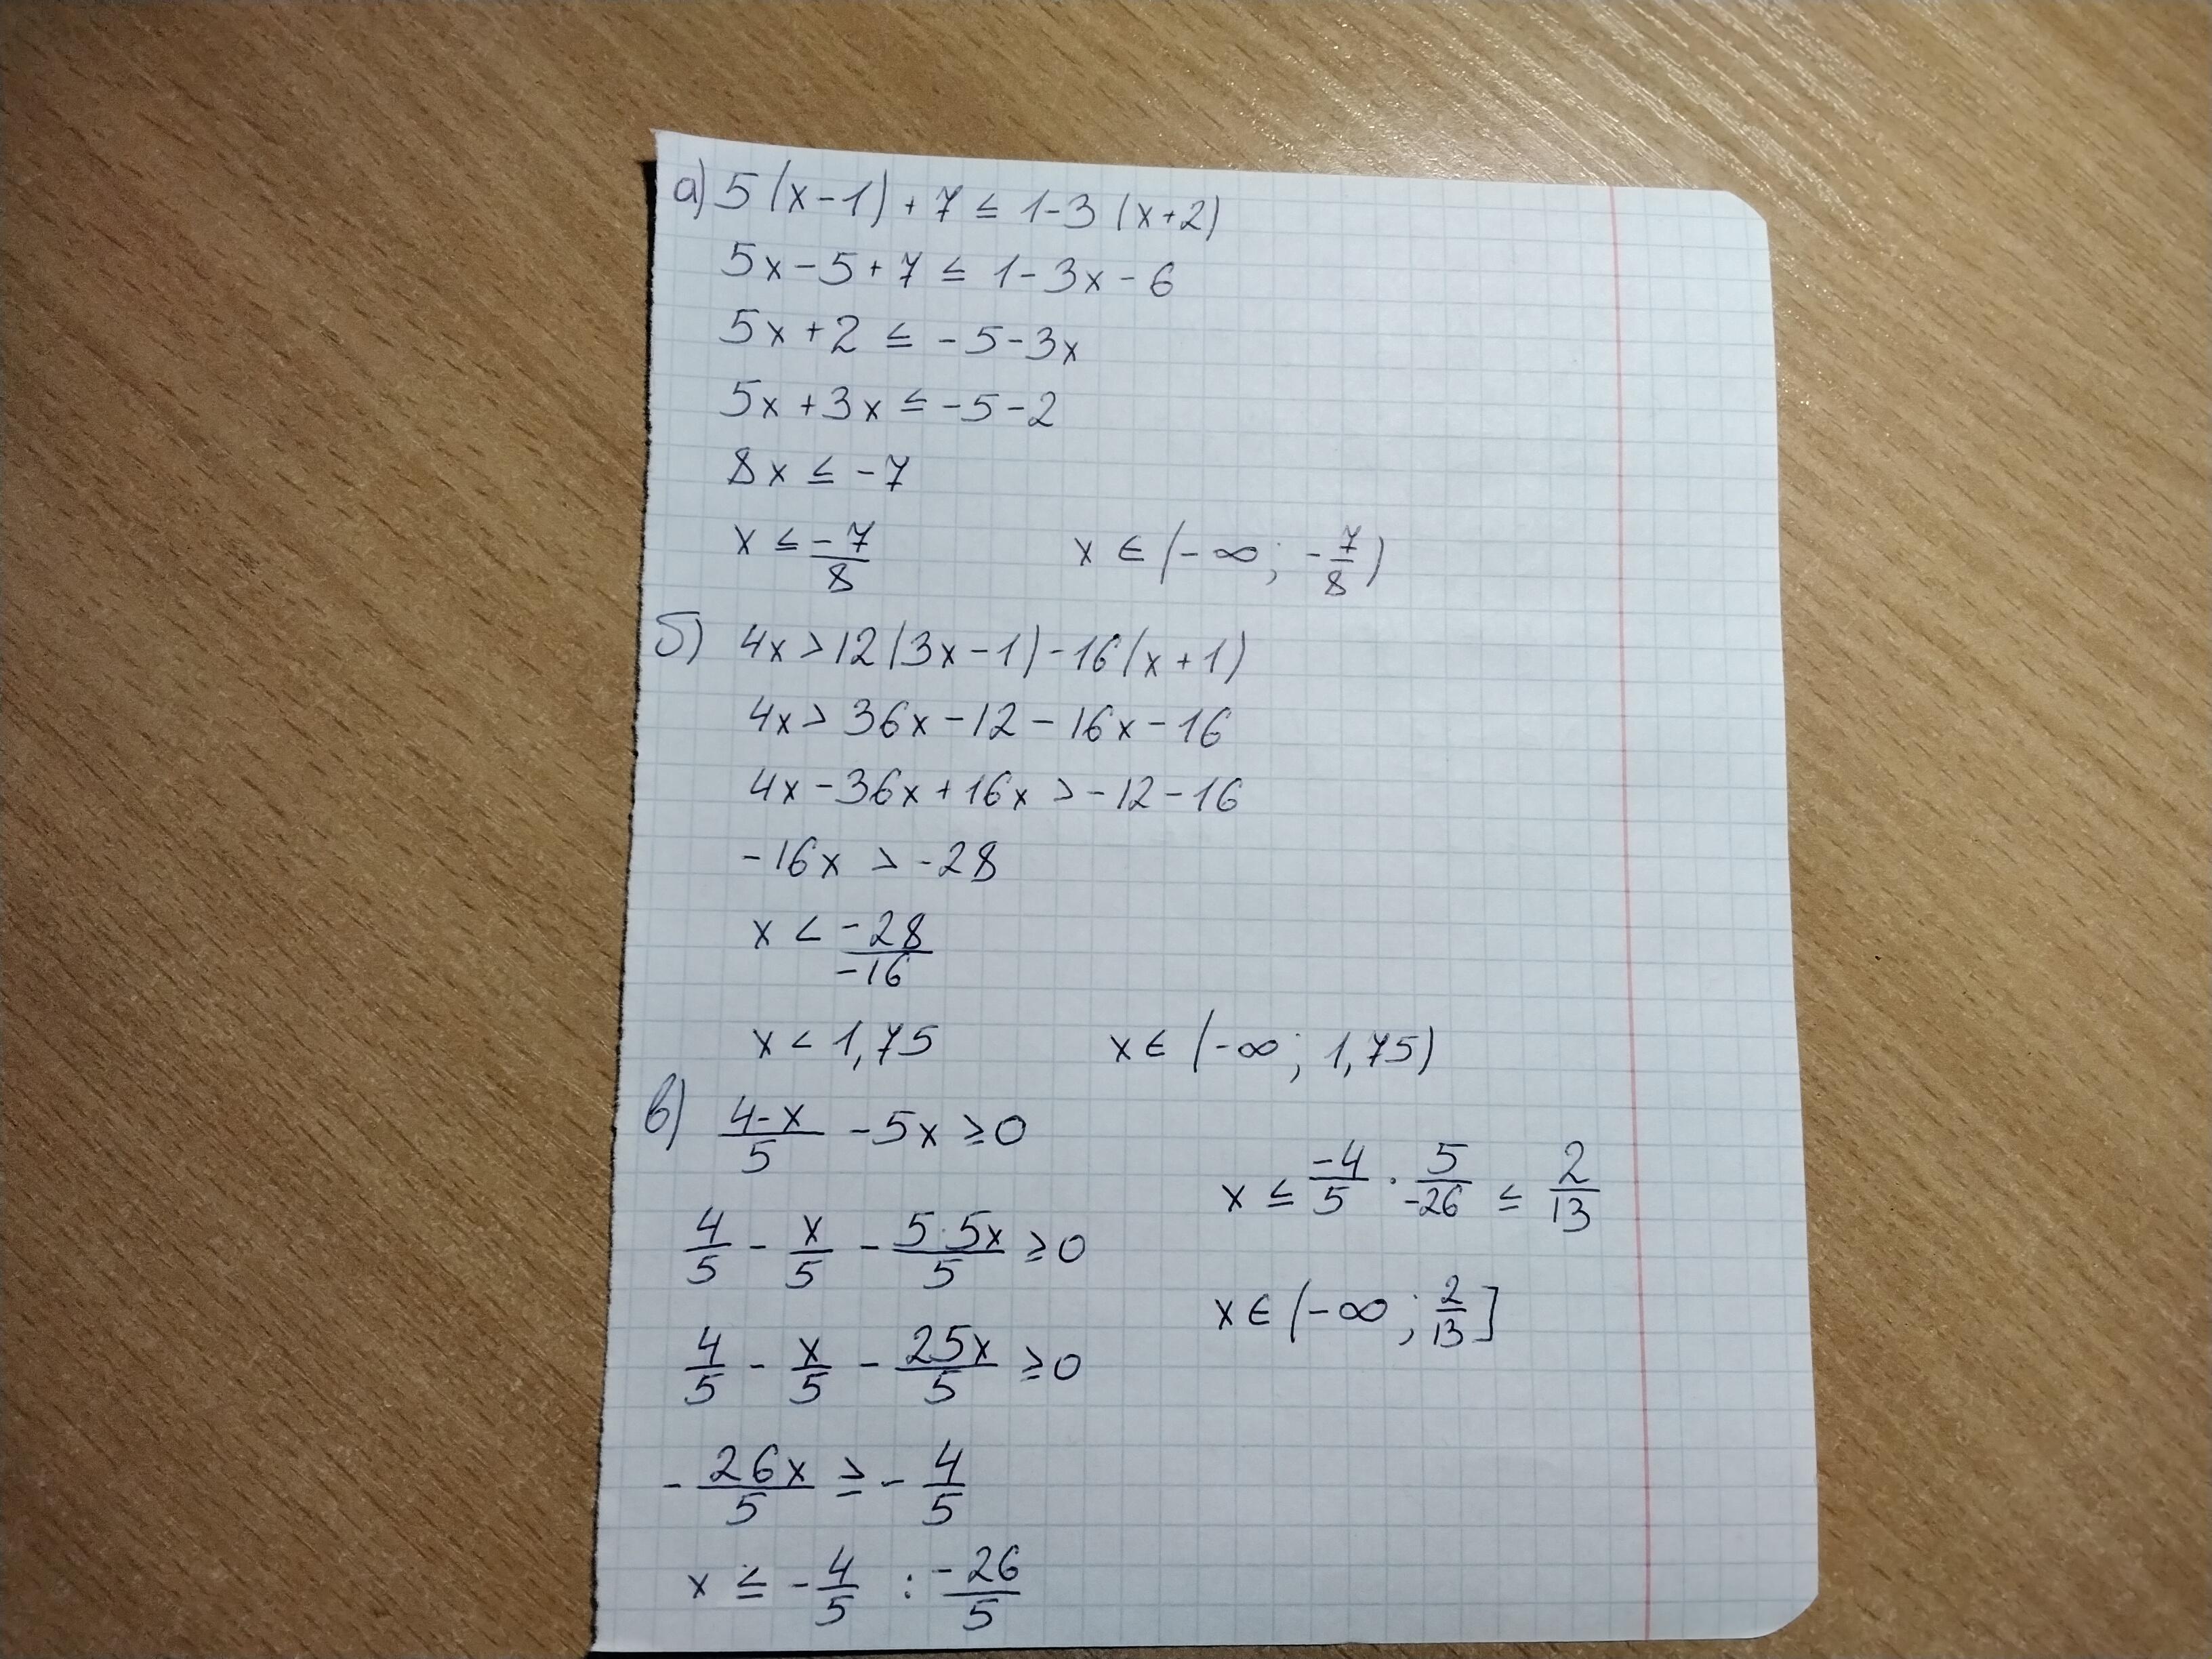 а) 5(x-1)+7 ≤ 1-3(x+2)
5x-5+7 ≤ 1-3x-6
5x+2 ≤ -5-3x
5x+3x ≤ -5-2
8x ≤ -7
x ≤ -7/8 x ∈ (-∞; -7/8)
б) 4x > 12(3x-1)-16(x+1)
4x > 36x-12-16x-16
4x-36x+16x > -12-16
-16x > -28
x < -28/-16
x < 1,75 x ∈ (-∞; 1,75)
в) 4-x/5 - 5x ≥ 0
4/5 - x/5 - 5·5x/5 ≥ 0
4/5 - x/5 - 25x/5 ≥ 0
-26x/5 ≥ -4/5
x ≤ -4/5 : -26/5
x ≤ -4/5 · 5/-26 ≤ 2/13
x ∈ (-∞; 2/13]